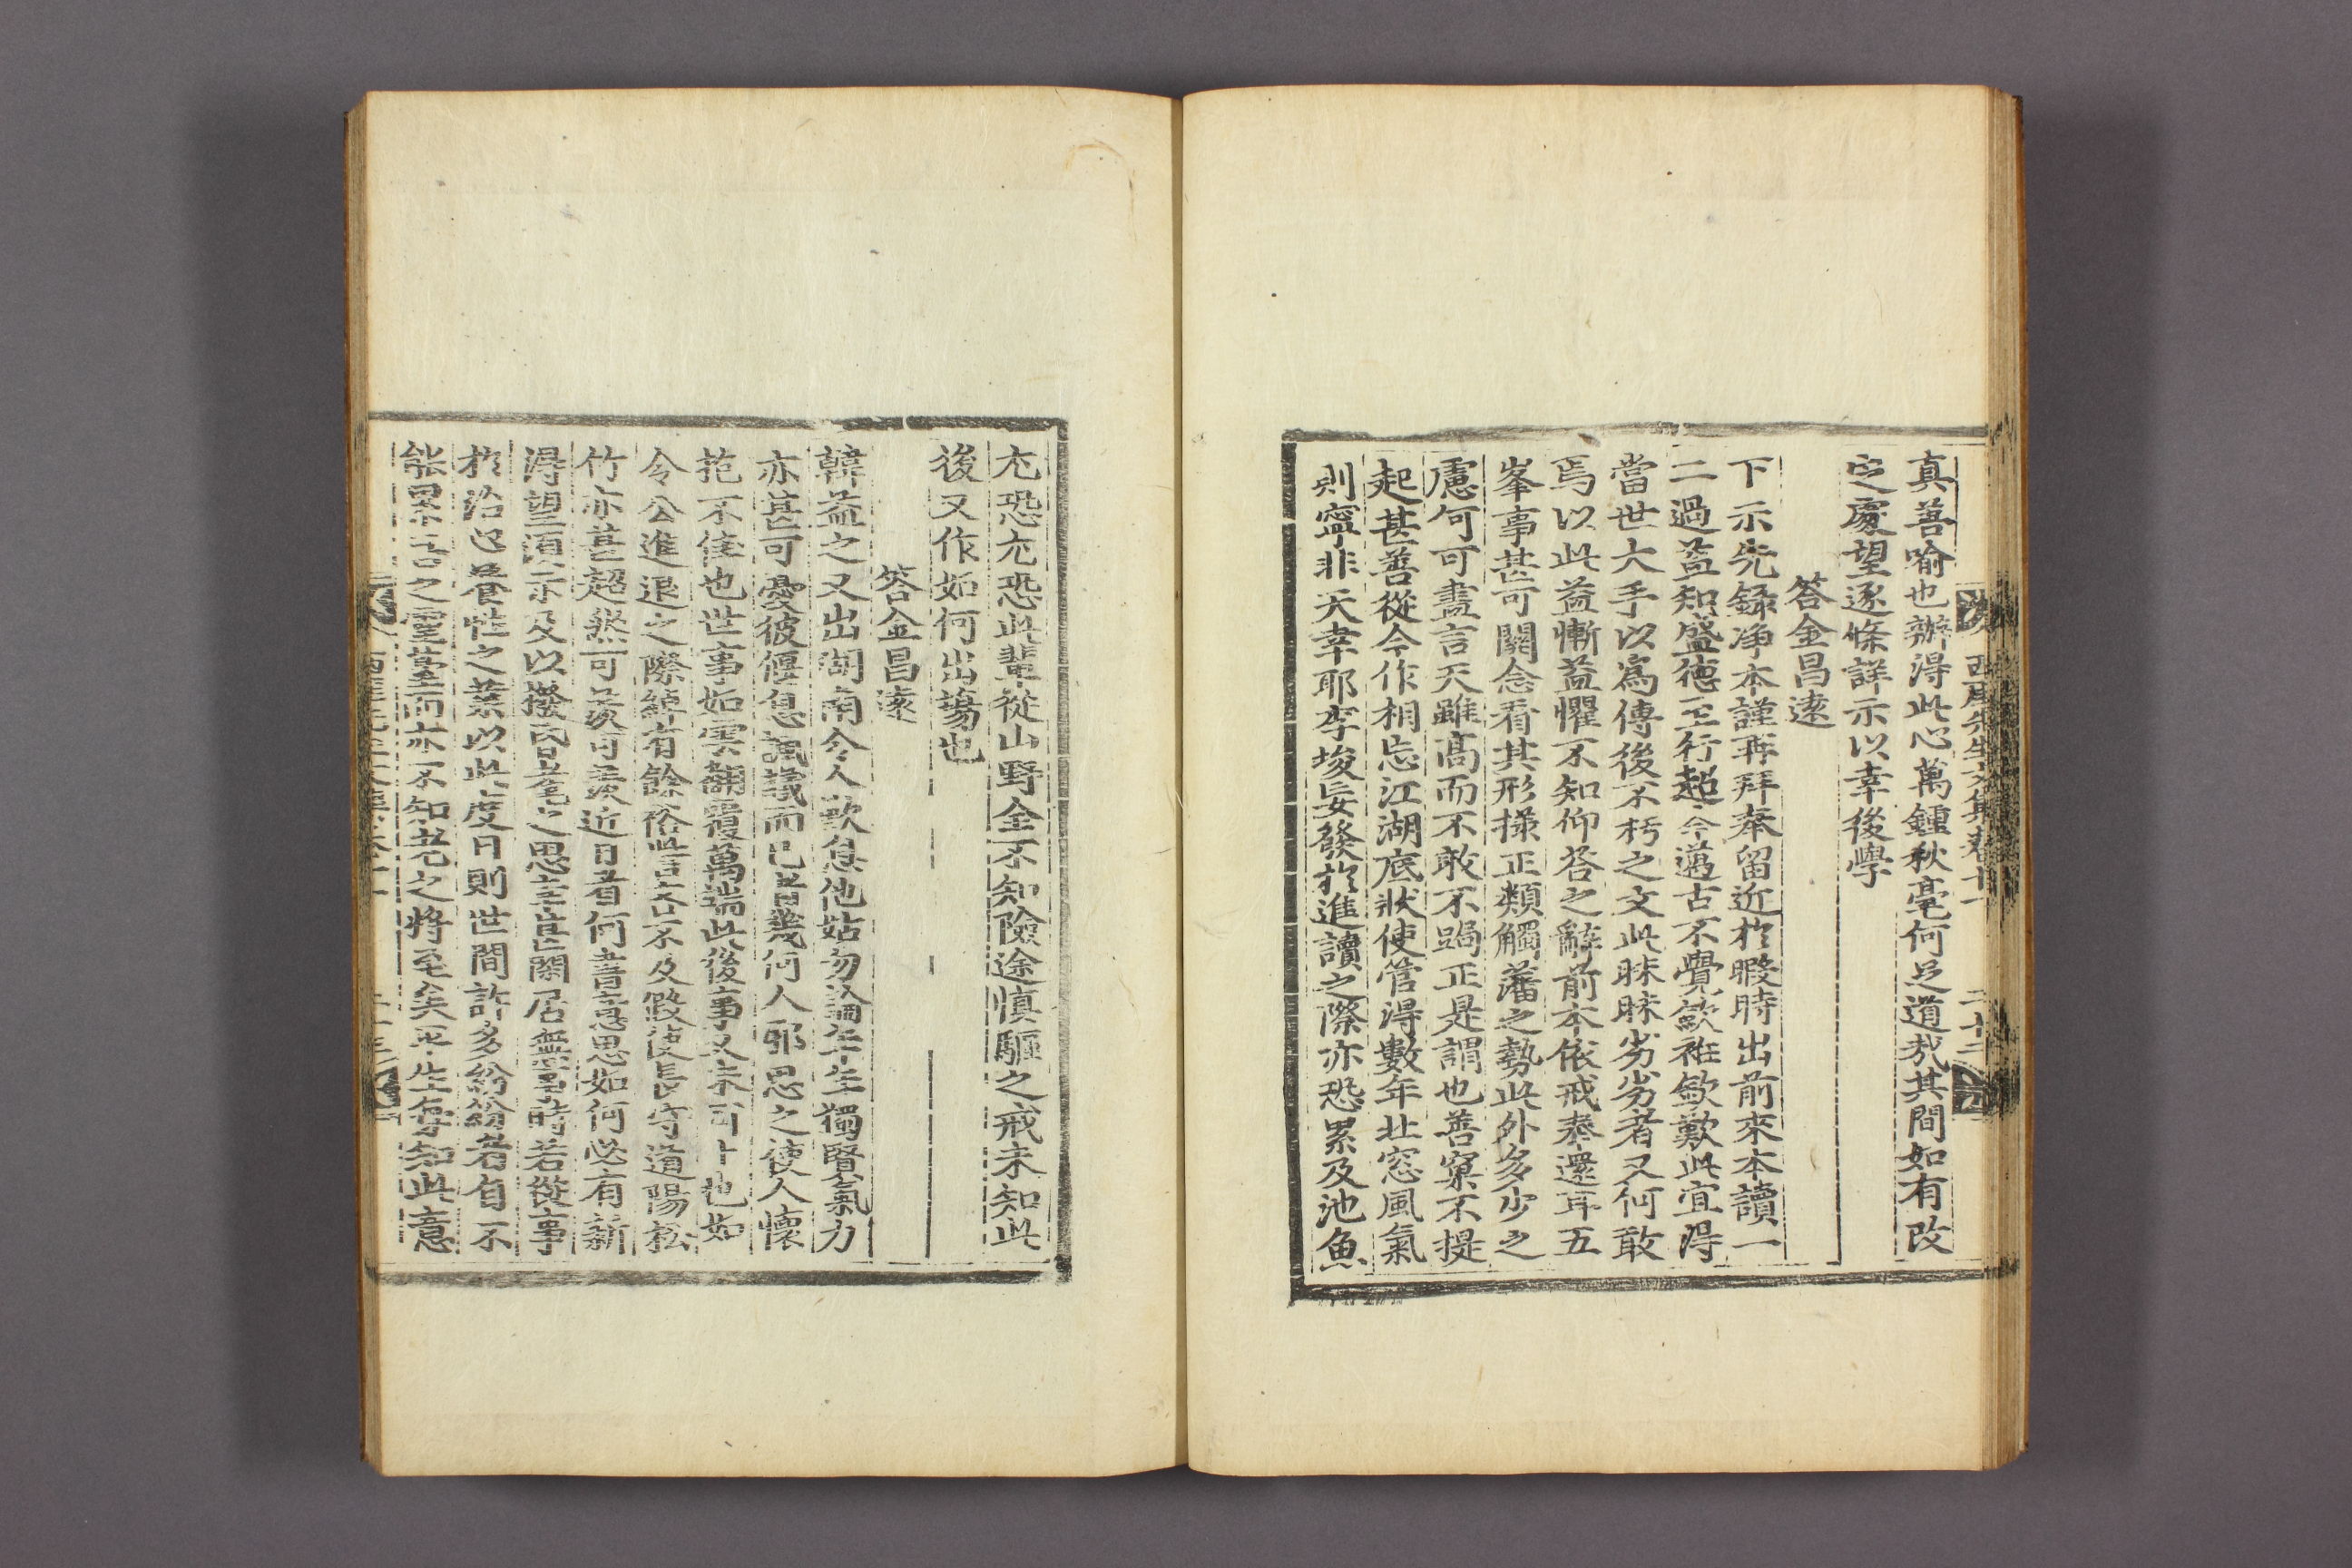 真善喻也辦得此心萬鍾秋毫何足道哉其間如有改
定處望逐條詳示以幸後學
答金昌遠
下示先錄净本謹再拜奉留近扵暇時出前來本讀一
二過益知盛德至行超今邁古不覺歛袵欽歎此宜得
當世大手以爲傳後不朽之文此昧昧劣劣者又何敢
焉以此益慚益懼不知仰答之辭前本依戒奉還耳五
峯事甚可關念看其形㨾正類觸藩之勢此外多少之
慮何可盡言天雖髙而不敢不跼正是謂也善窠不提
起甚善從今作相忘江湖底狀使管得數年北窓風氣
則寧非天幸耶李埈妄發扵進讀之際亦恐累及池魚
西厓先生文集卷十一
二十二
尢恐尢恐此輩從山野全不知險途慎驅之戒未知此
後又作如何出塲也
答金昌遠
韓益之又出湖南令人歎息他姑勿論年年獨賢氣力
亦甚可憂彼偃息諷議而已者幾何人耶思之使人懷
抱不佳也世事如雲飜覆萬端此後事又未可卜也如
令公進退之際綽有餘裕此言奇不及假使長守道陽松
竹亦甚超然可羡可羡近日看何書意思如何必有新
得望須示及以撥昏耄之思幸幸閑居無事時若從事
扵治心養性之業以此度日則世間許多紛紛者自不
能累吾之靈臺而亦不知老之將至矣平生毎知此意